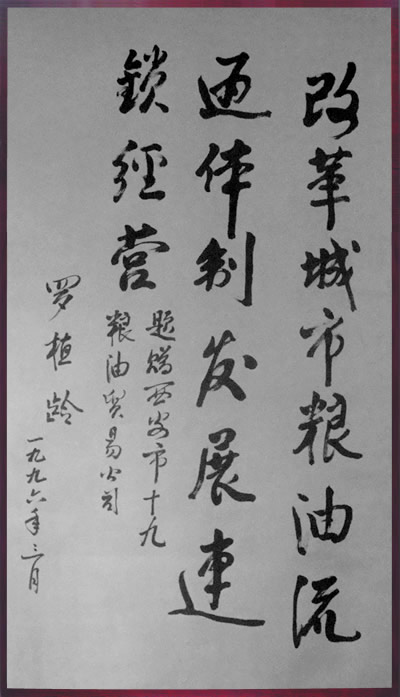 改革城市粮油流
通体制发展连
鎖經营
题赠西安市十九
粮油贸易公司
罗植龄
一九九六年三月